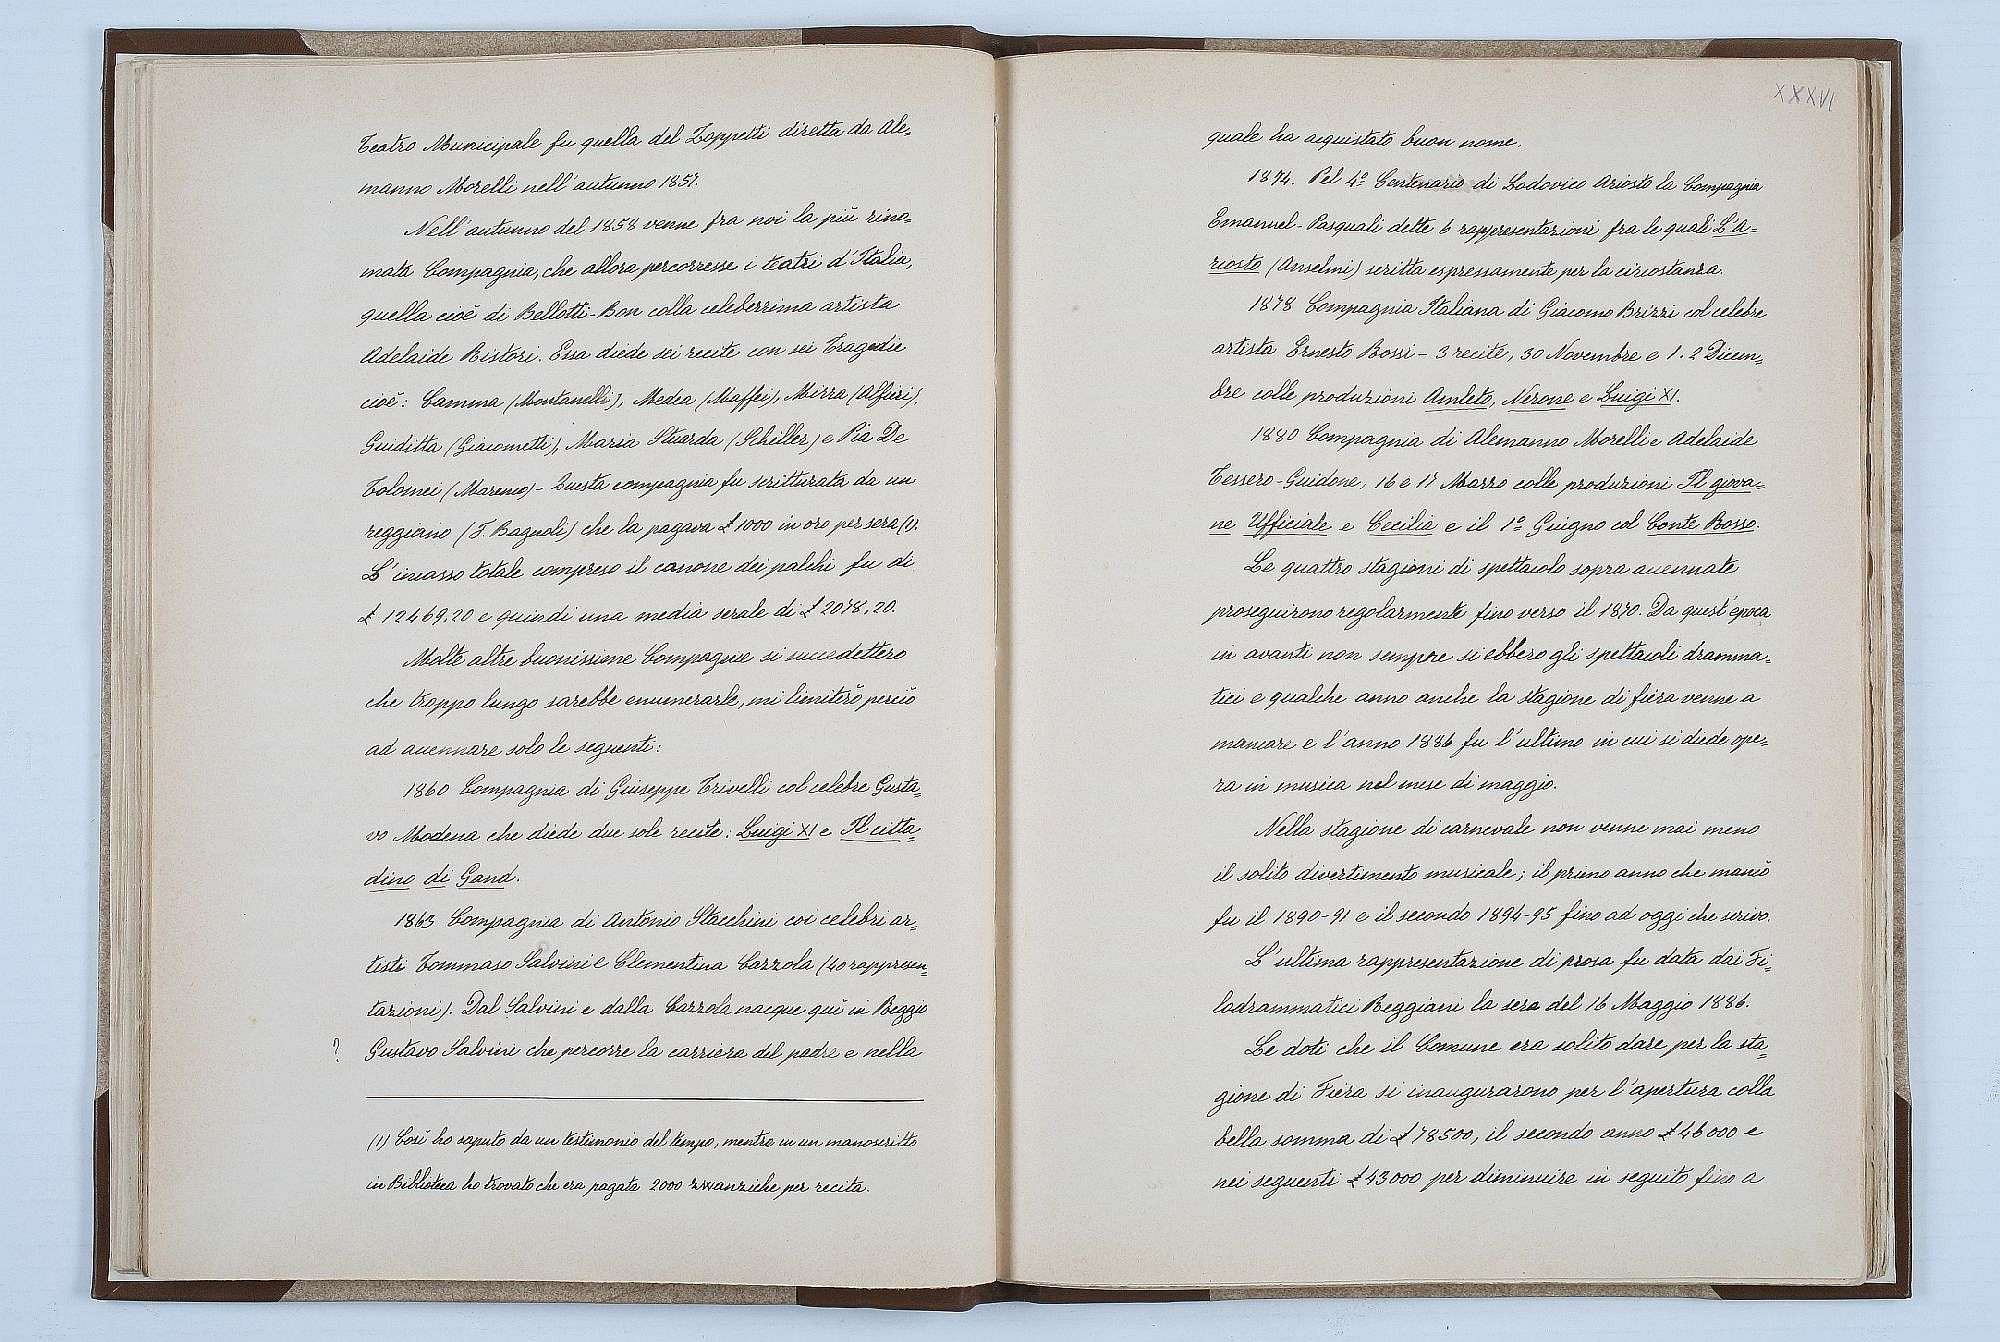 Teatro Municipale fu quella del Zoppetti diretta da Ale=
manno Morelli nell'autunno 1857.
Nell'autunno del 1858 venne fra noi la più rino=
mata Compagnia, che allora percorresse i teatri d'Italia,
quella cioè di Bellotti-Bon colla celeberrima artista
Adelaide Ristori. Essa diede sei recite con sei Tragedie
cioè: Camma (Montanelli), Medea (Maffei), Mirra (Alfieri),
Giuditta (Giacometti), Maria Stuarda (Schiller) e Pia De
Tolomei (Marenco) - Questa compagnia fu scritturata da un
reggiano (F. Bagnoli) che la pagava £ 1000 in oro per sera (1).
L'incasso totale compreso il canone dei palchi fu di
£ 12469.20 e quindi una media serale di £ 2078.20.
Molte altre buonissime Compagnie si succedettero
che troppo lungo sarebbe enumerarle, mi limiterò perciò
ad accennare solo le seguenti:
1860 Compagnia di Giuseppe Trivelli col celebre Gusta=
vo Modena che diede due sole recite: Luigi XI e Il citta=
dino di Gand.
1863 Compagnia di Antonio Stacchini coi celebri ar=
tisti Tommaso Salvini e Clementina Cazzola (40 rappresen=
tazioni). Dal Salvini e dalla Cazzola nacque quì in Reggio
? Gustavo Salvini che percorre la carriera del padre e nella
(1) Così ho saputo da un testimonio del tempo, mentre in un manoscritto
in Biblioteca ho trovato che era pagata 2000 zwanziche per recita.
XXXVI
quale ha acquistato buon nome.
1874. Pel 4º Centenario di Lodovico Ariosto la Compagnia
Emanuel-Pasquali dette 6 rappresentazioni fra le quali L'A=
riosto (Anselmi) scritta espressamente per la circostanza.
1878 Compagnia Italiana di Giacomo Brizzi col celebre
artista Ernesto Rossi - 3 recite, 30 Novembre e 1.2 Dicem=
bre colle produzioni Amleto, Nerone e Luigi XI.
1880 Compagnia di Alemanno Morelli e Adelaide
Tessero-Guidone, 16 e 17 Marzo colle produzioni Il giova=
ne Ufficiale e Cecilia e il 1º Giugno col Conte Rosso.
Le quattro stagioni di spettacolo sopra accennate
proseguirono regolarmente fino verso il 1870. Da quest'epoca
in avanti non sempre si ebbero gli spettacoli dramma=
tici e qualche anno anche la stagione di fiera venne a
mancare e l'anno 1886 fu l'ultimo in cui si diede ope=
ra in musica nel mese di maggio.
Nella stagione di carnevale non venne mai meno
il solito divertimento musicale; il primo anno che mancò
fu il 1890-91 e il secondo 1894-95 fino ad oggi che scrivo.
L'ultima rappresentazione di prosa fu data dai Fi=
lodrammatici Reggiani la sera del 16 Maggio 1886.
Le doti che il Comune era solito dare per la sta=
gione di Fiera si inaugurarono per l'apertura colla
bella somma di £ 78500, il secondo anno £ 46000 e
nei seguenti £ 43000 per diminuire in seguito fino a